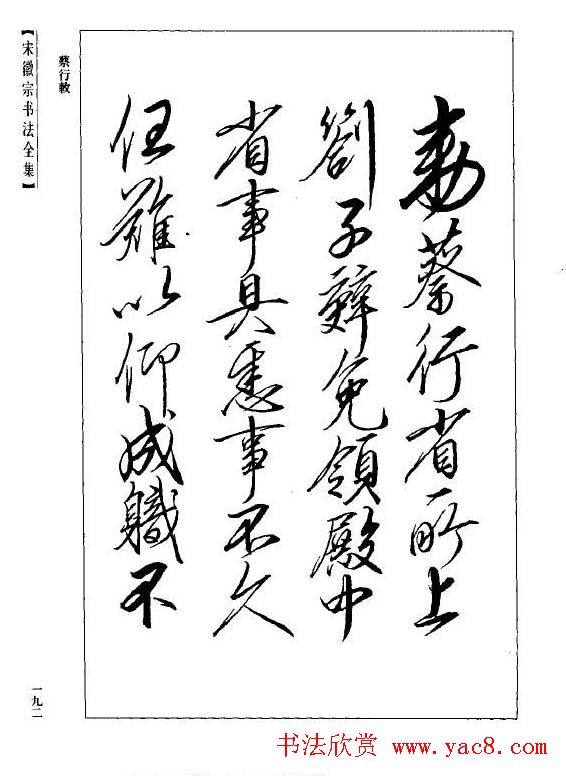 【宋徽宗书法全集】
蔡行敕
敕蔡行省所上
劄子辭免領殿中
省事具悉事不久
任難以仰成職不
一九二
书法欣赏 www.yac8.com